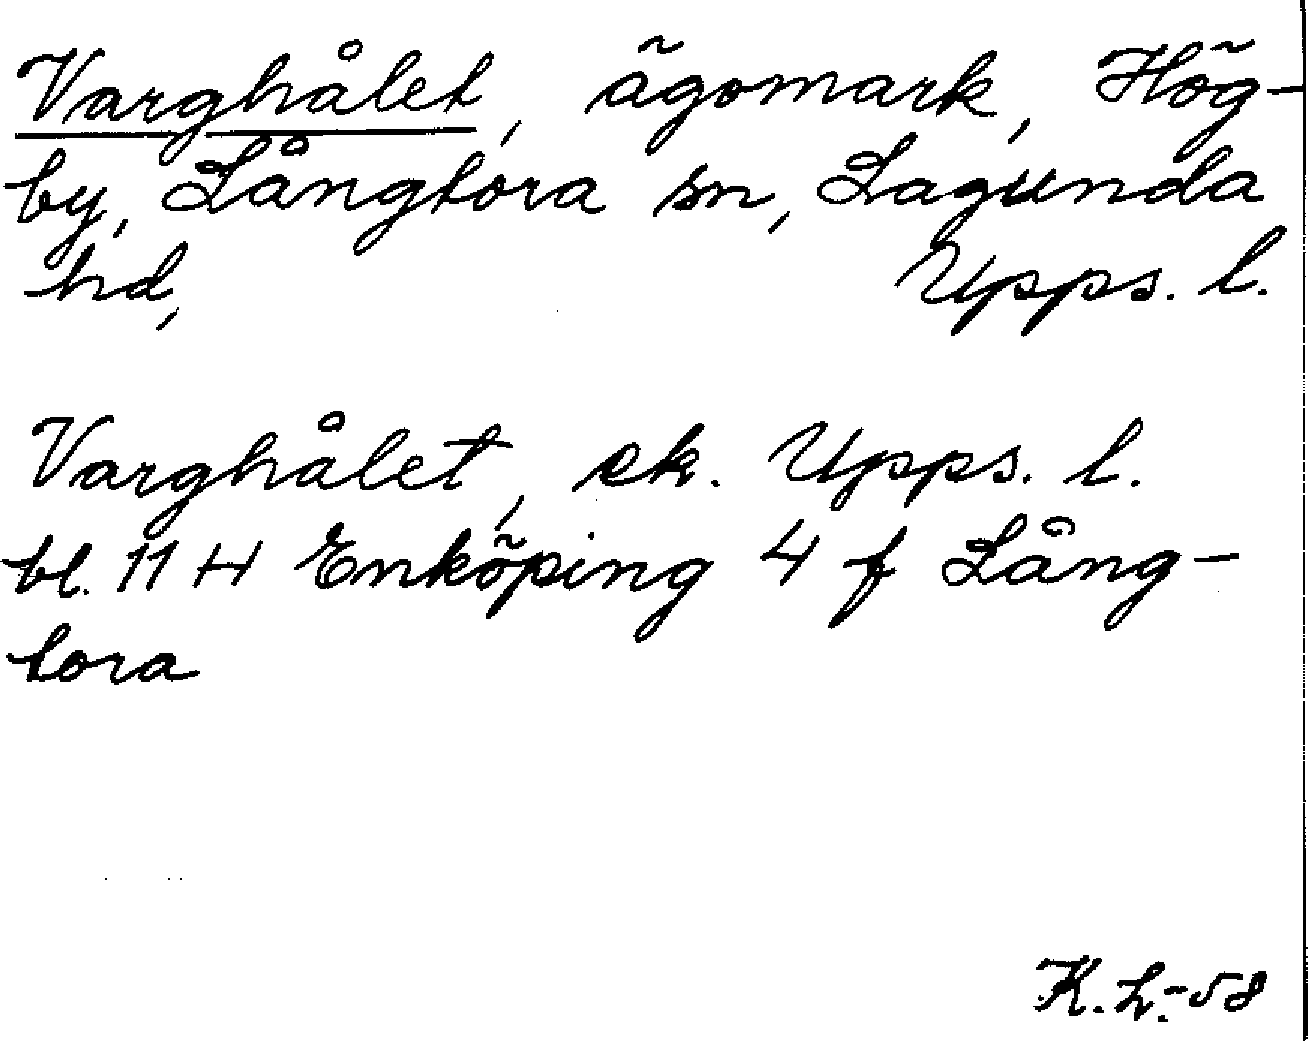 Varghålet, ägomark, Hög-
by, Långtora sn, Lagunda
hd, Upps. l.
Varghålet, ek. Upps. l.
bl. 11 H Enköping 4 f Lång-
tora
K. L. -58